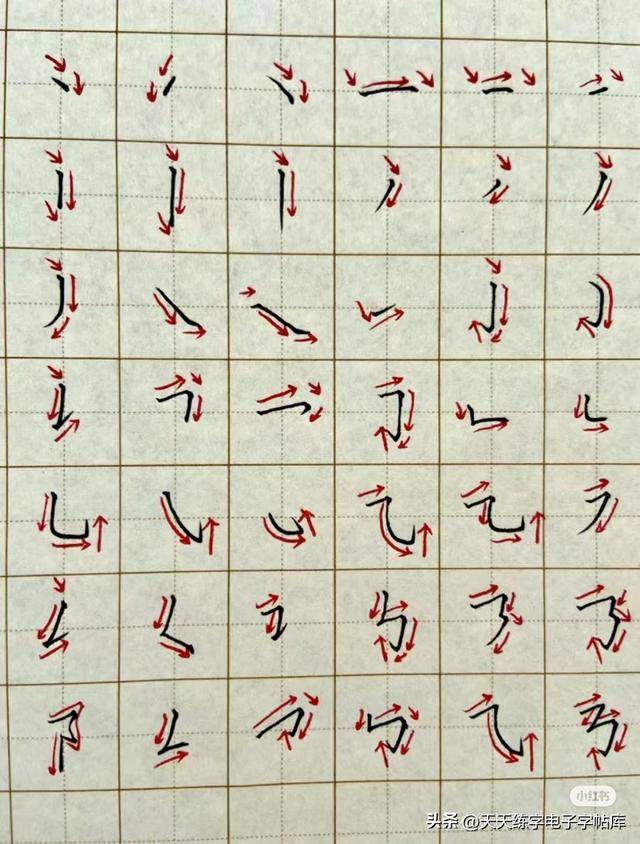 小红书
头条 @天天练字电子字帖库